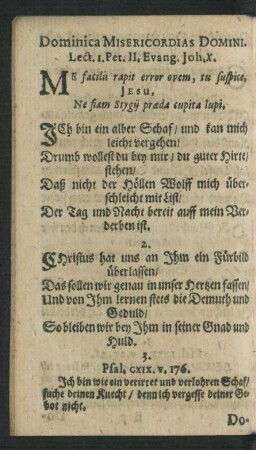 Dominica MISERICORDIAS DOMINI.
Lect. 1. Pet. II. Evang. Joh. X.
ME facilis rapit error ovem, tu suspice,
JESU,
Ne fiam Stygij præda cupita lupi.
ICh bin ein alber Schaf / und kan mich
leicht vergehen /
Drumb wollest du bey mir / du guter Hirte /
stehen /
Daß nicht der Höllen Wolff mich über-
schleicht mit List /
Der Tag und Nacht bereit auff mein Ver-
derben ist.
2.
CHristus hat uns an Ihm ein Fürbild
überlassen /
Das sollen wir genau in unser Hertzen fassen /
Und von Ihm lernen stets die Demuth und
Geduld /
So bleiben wir bey Ihm in seiner Gnad und
Huld.
3.
Psal. CXIX. v. 176.
Ich bin wie ein verirret und verlohren Schaf /
suche deinen Knecht / denn ich vergesse deiner Ge-
bot nicht.
Do-